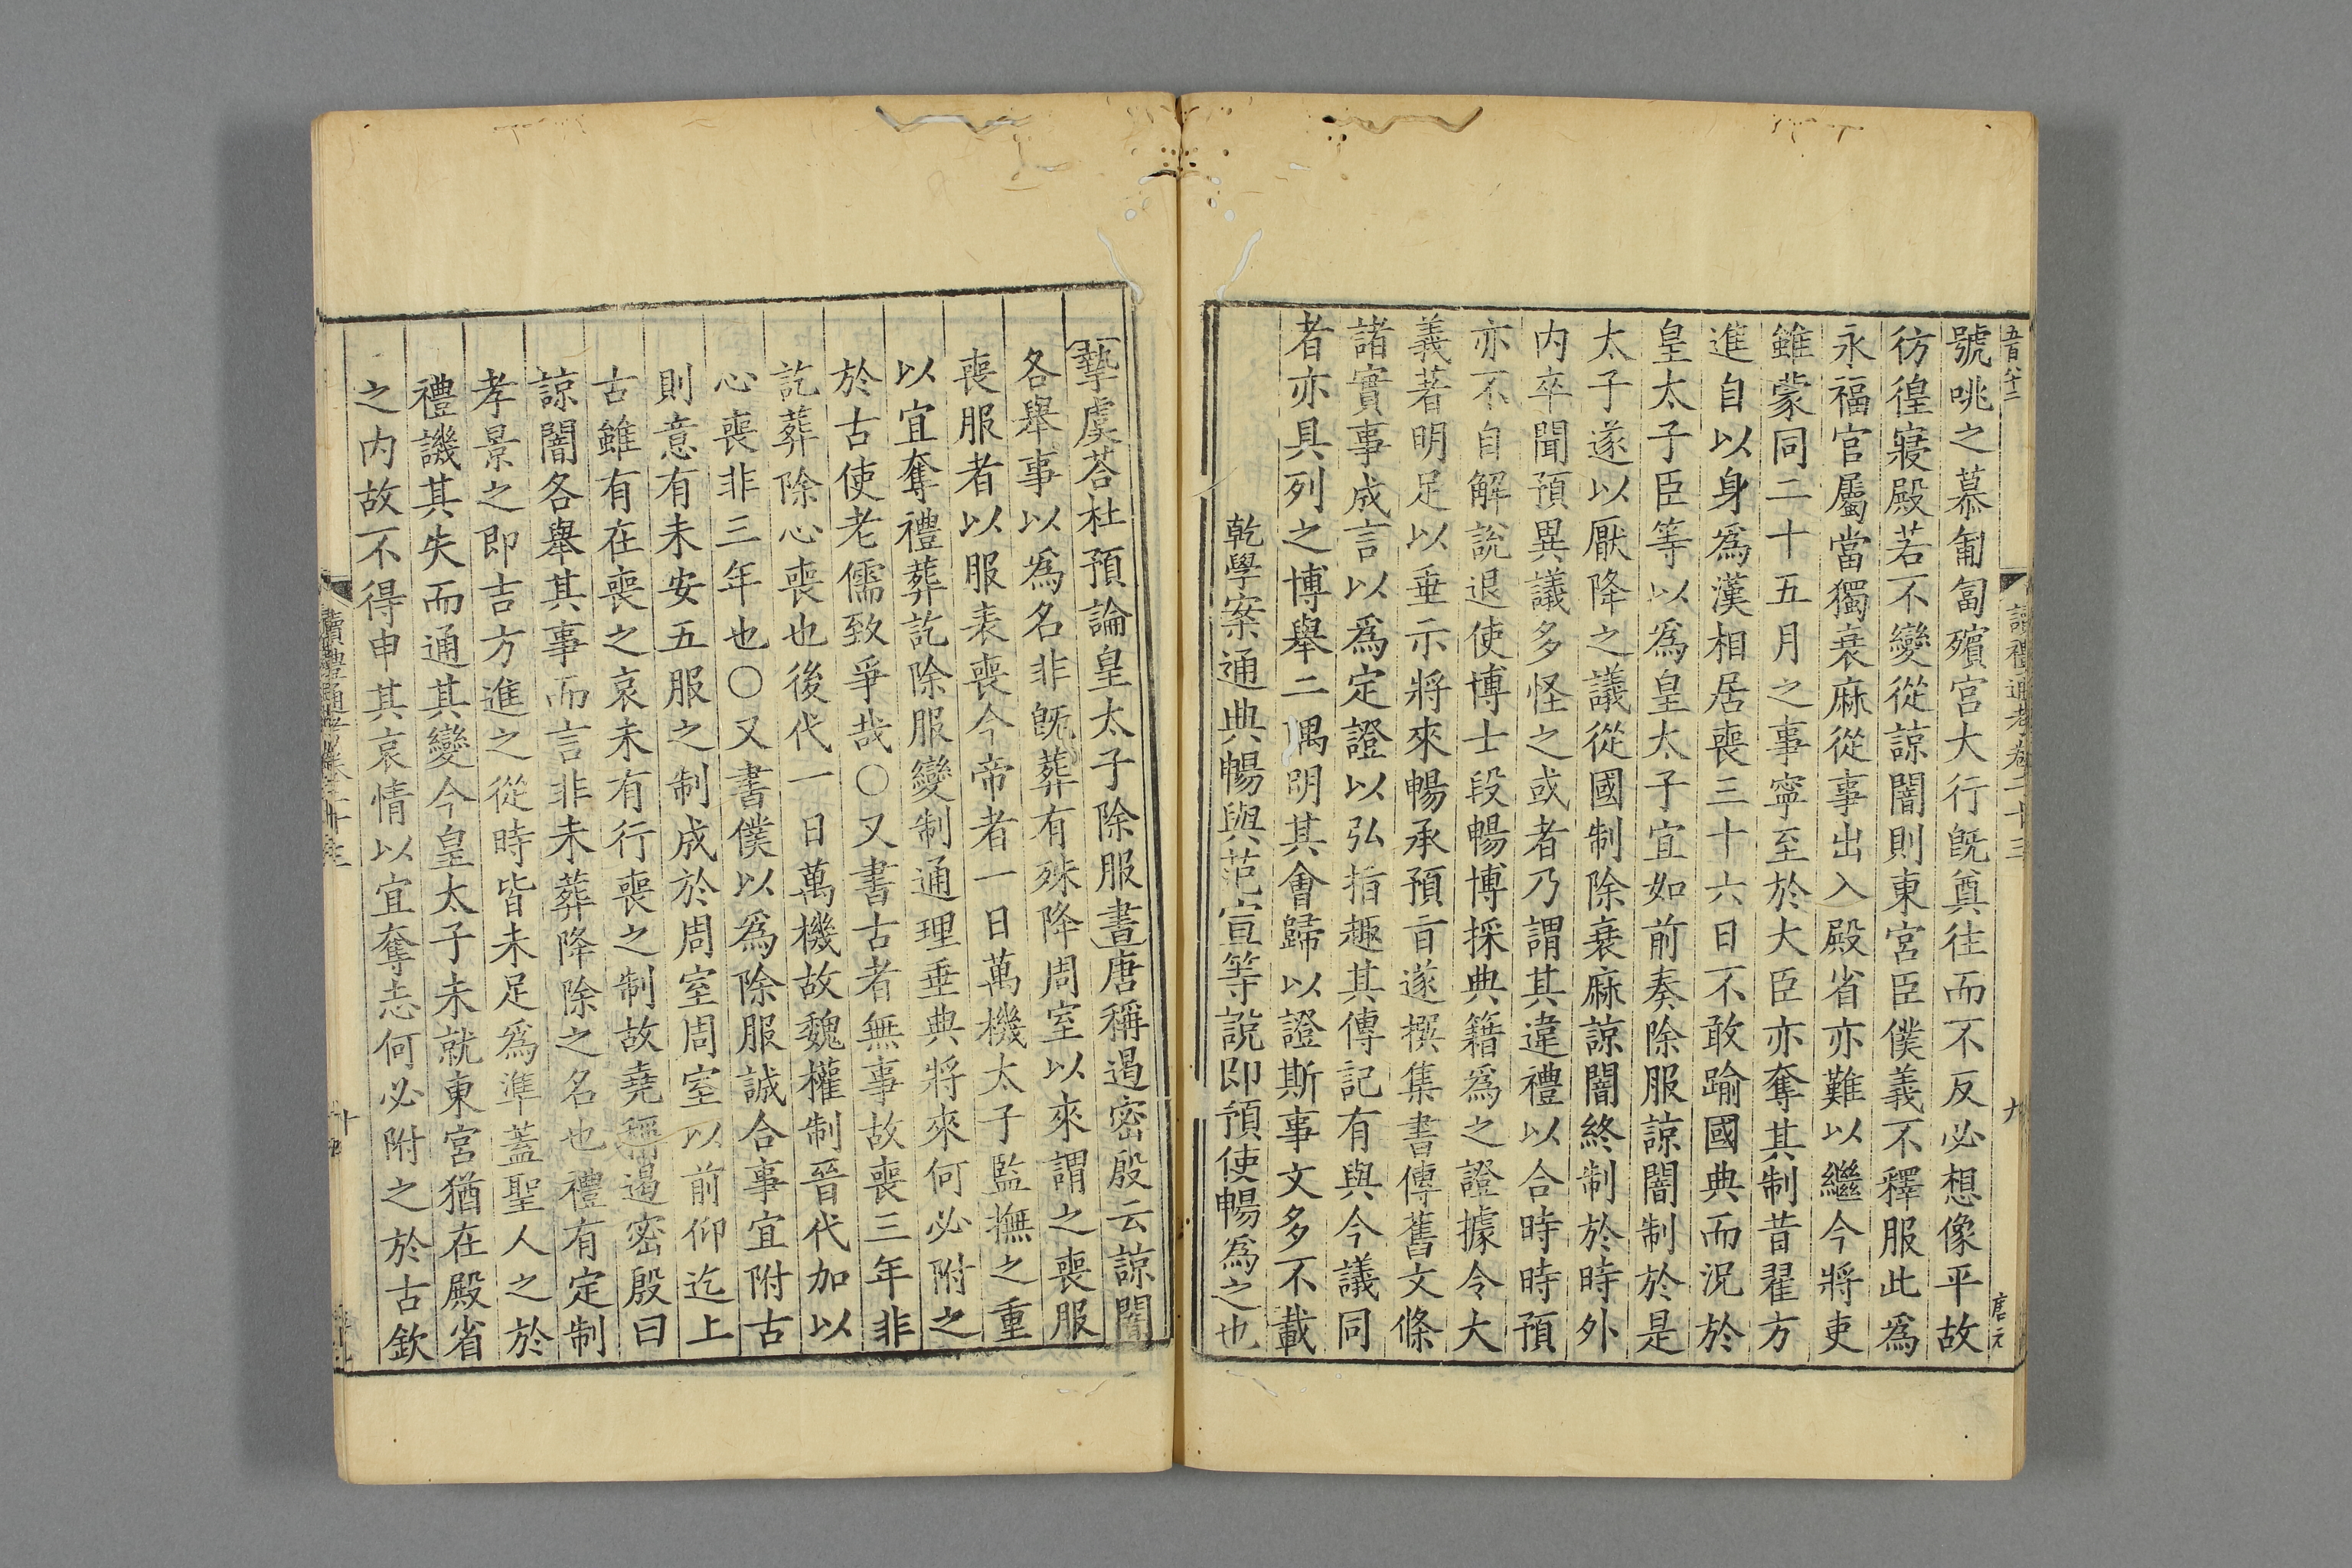 號咷之慕匍匐殯宮大行旣奠往而不反必想像平故
彷徨寢殿若不變從諒闇則東宮臣僕義不釋服此爲
永福官屬當獨衰麻從事出入殿省亦難以繼今將吏
雖蒙同二十五月之事寧至於大臣亦奪其制昔翟方
進自以身爲漢相居喪三十六日不敢踰國典而況於
皇太子臣等以爲皇太子宜如前奏除服諒闇制於是
太子遂以厭降之議從國制除衰麻諒闇終制於時外
内卒聞預異議多怪之或者乃謂其違禮以合時時預
亦不自解說退使博士段暢博採典籍爲之證據令大
義著明足以垂示將來暢承預旨遂撰集書傳舊文條
諸實事成言以爲定證以弘指趣其傳記有與今議同
者亦具列之博舉二隅明其會歸以證斯事文多不載
乾學案通典暢與范宣等說即預使暢爲之也
摯虞荅杜預論皇太子除服書唐稱遏密殷云諒闇
各舉事以爲名非旣葬有殊降周室以來謂之喪服
喪服者以服表喪今帝者一日萬機太子監撫之重
以宜奪禮葬訖除服變制通理垂典將來何必附之
於古使老儒致爭哉〇又書古者無事故喪三年非
訖葬除心喪也後代一日萬機故魏權制晉代加以
心喪非三年也〇又書僕以爲除服誠合事宜附古
則意有未安五服之制成於周室周室以前仰迄上
古雖有在喪之哀未有行喪之制故堯稱遏密殷曰
諒闇各舉其事而言非未葬降除之名也禮有定制
孝景之即吉方進之從時皆未足爲準蓋聖人之於
禮譏其失而通其變今皇太子未就東宮猶在殿省
之内故不得申其哀情以宜奪志何必附之於古欽
五百八十二
讀禮通考卷二十三
九
唐元
讀禮通考卷二十三
十